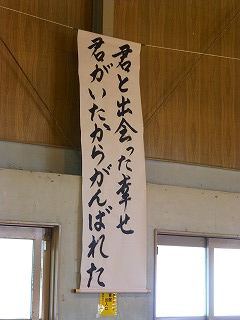 君と出会った幸せ
君がいたからがんばれた